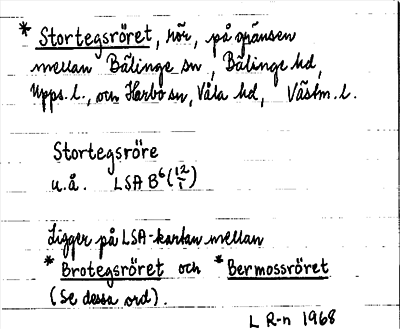 * Stortegsröret, rör, på gränsen
mellan Bälinge sn, Bälinge hd,
Upps. l., och Harbo sn, Våla hd, Västm. l.
Stortegsröre
u.å. LSA B⁶ (12/1)
Ligger på LSA-kartan mellan
* Brotegsröret och * Bermossröret
(Se dessa ord).
L R-n 1968